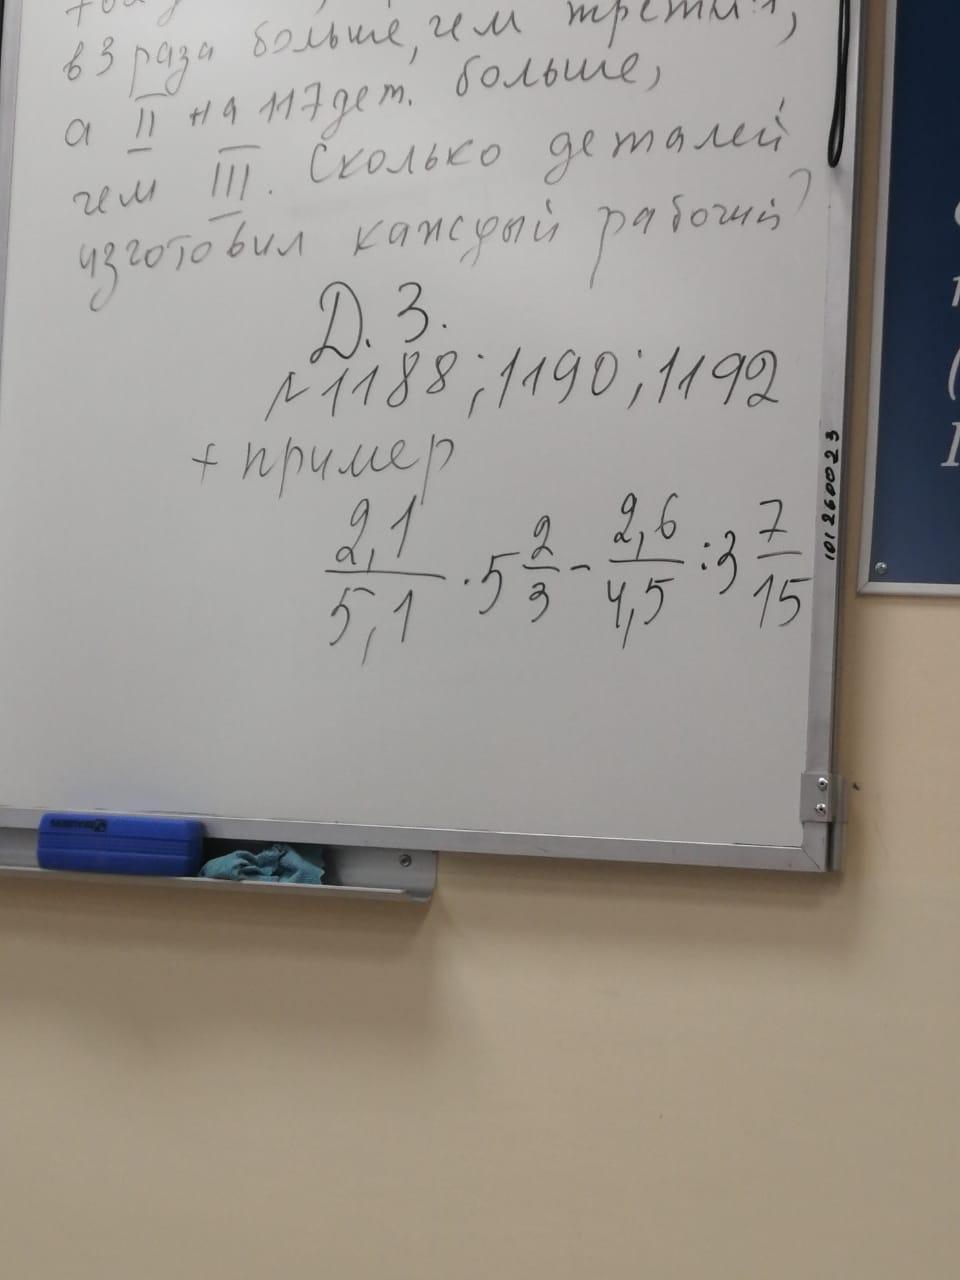 в 3 раза больше, чем третий,
а II на 117 дет. больше,
чем III. Сколько деталей
изготовил каждый рабочий?
Д.З.
№1188; 1190; 1192
+ пример
2,1/5,1 · 5 2/3 - 2,6/4,5 : 3 7/15
101260023